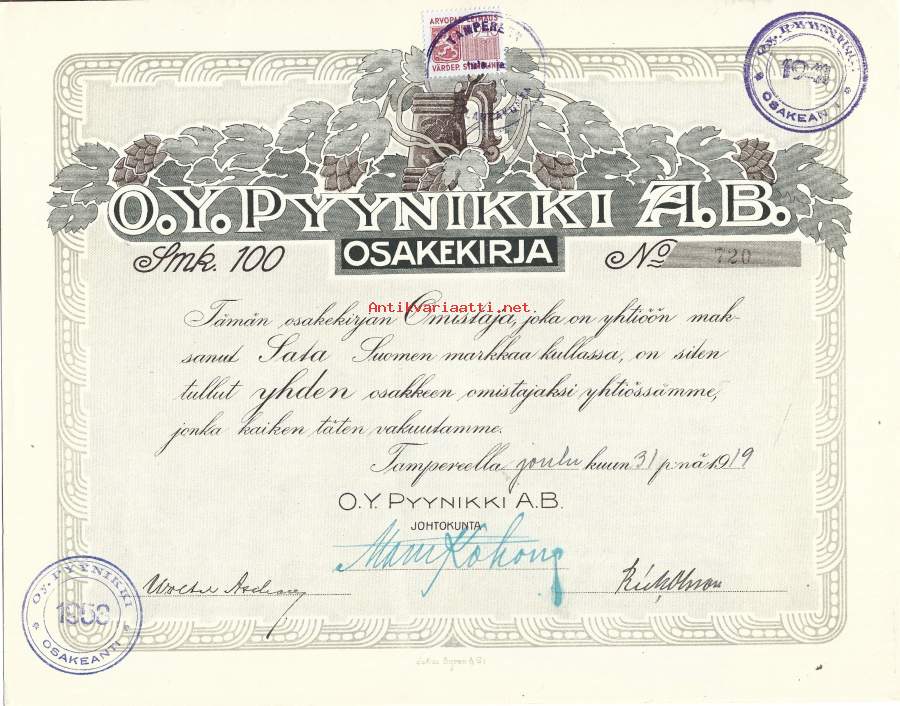 ARVOPAPERI
VÄRDEP.
TAMPEREEN
OY. PYYNIKKI
OSAKEANTI
O.Y. PYYNIKKI A.B.
Smk. 100 OSAKEKIRJA No 720
Antikvariaatti.net
Tämän osakekirjan Omistaja, joka on yhtiöön mak-
sanut Sata Suomen markkaa kullassa, on siten
tullut yhden osakkeen omistajaksi yhtiössämme,
jonka kaiken täten vakuutamme.
Tampereella, joulu kuun 31 p:nä 1919
O.Y. PYYNIKKI A.B.
JOHTOKUNTA
OY. PYYNIKKI
1953
OSAKEANTI